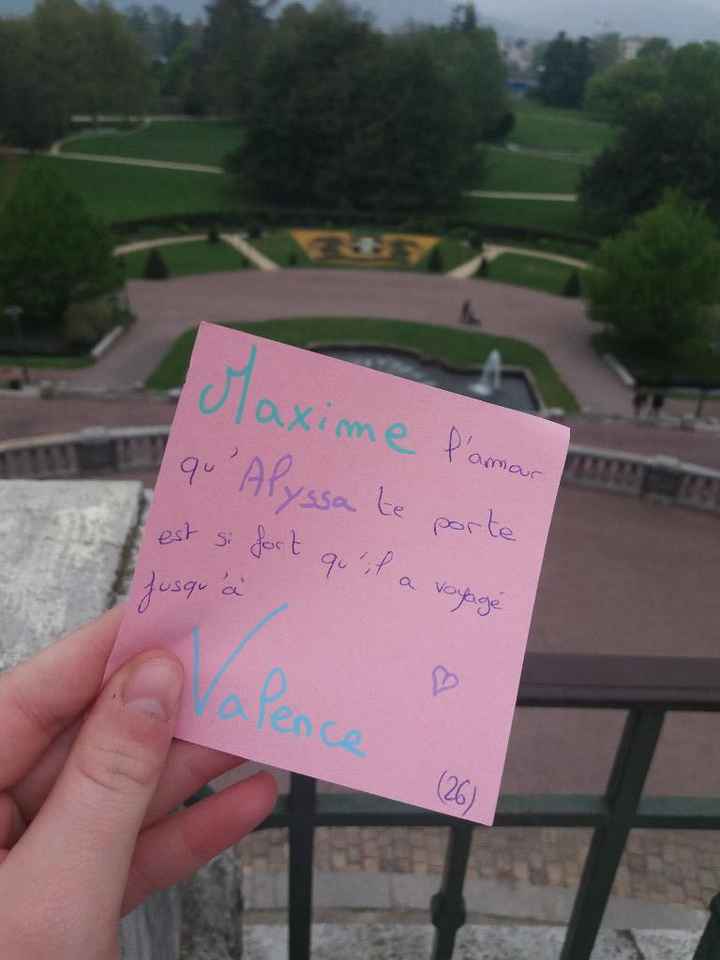 Maxime l'amour
qu'Alyssa te porte
est si fort qu'il a voyagé
jusqu'à
Valence
(26)